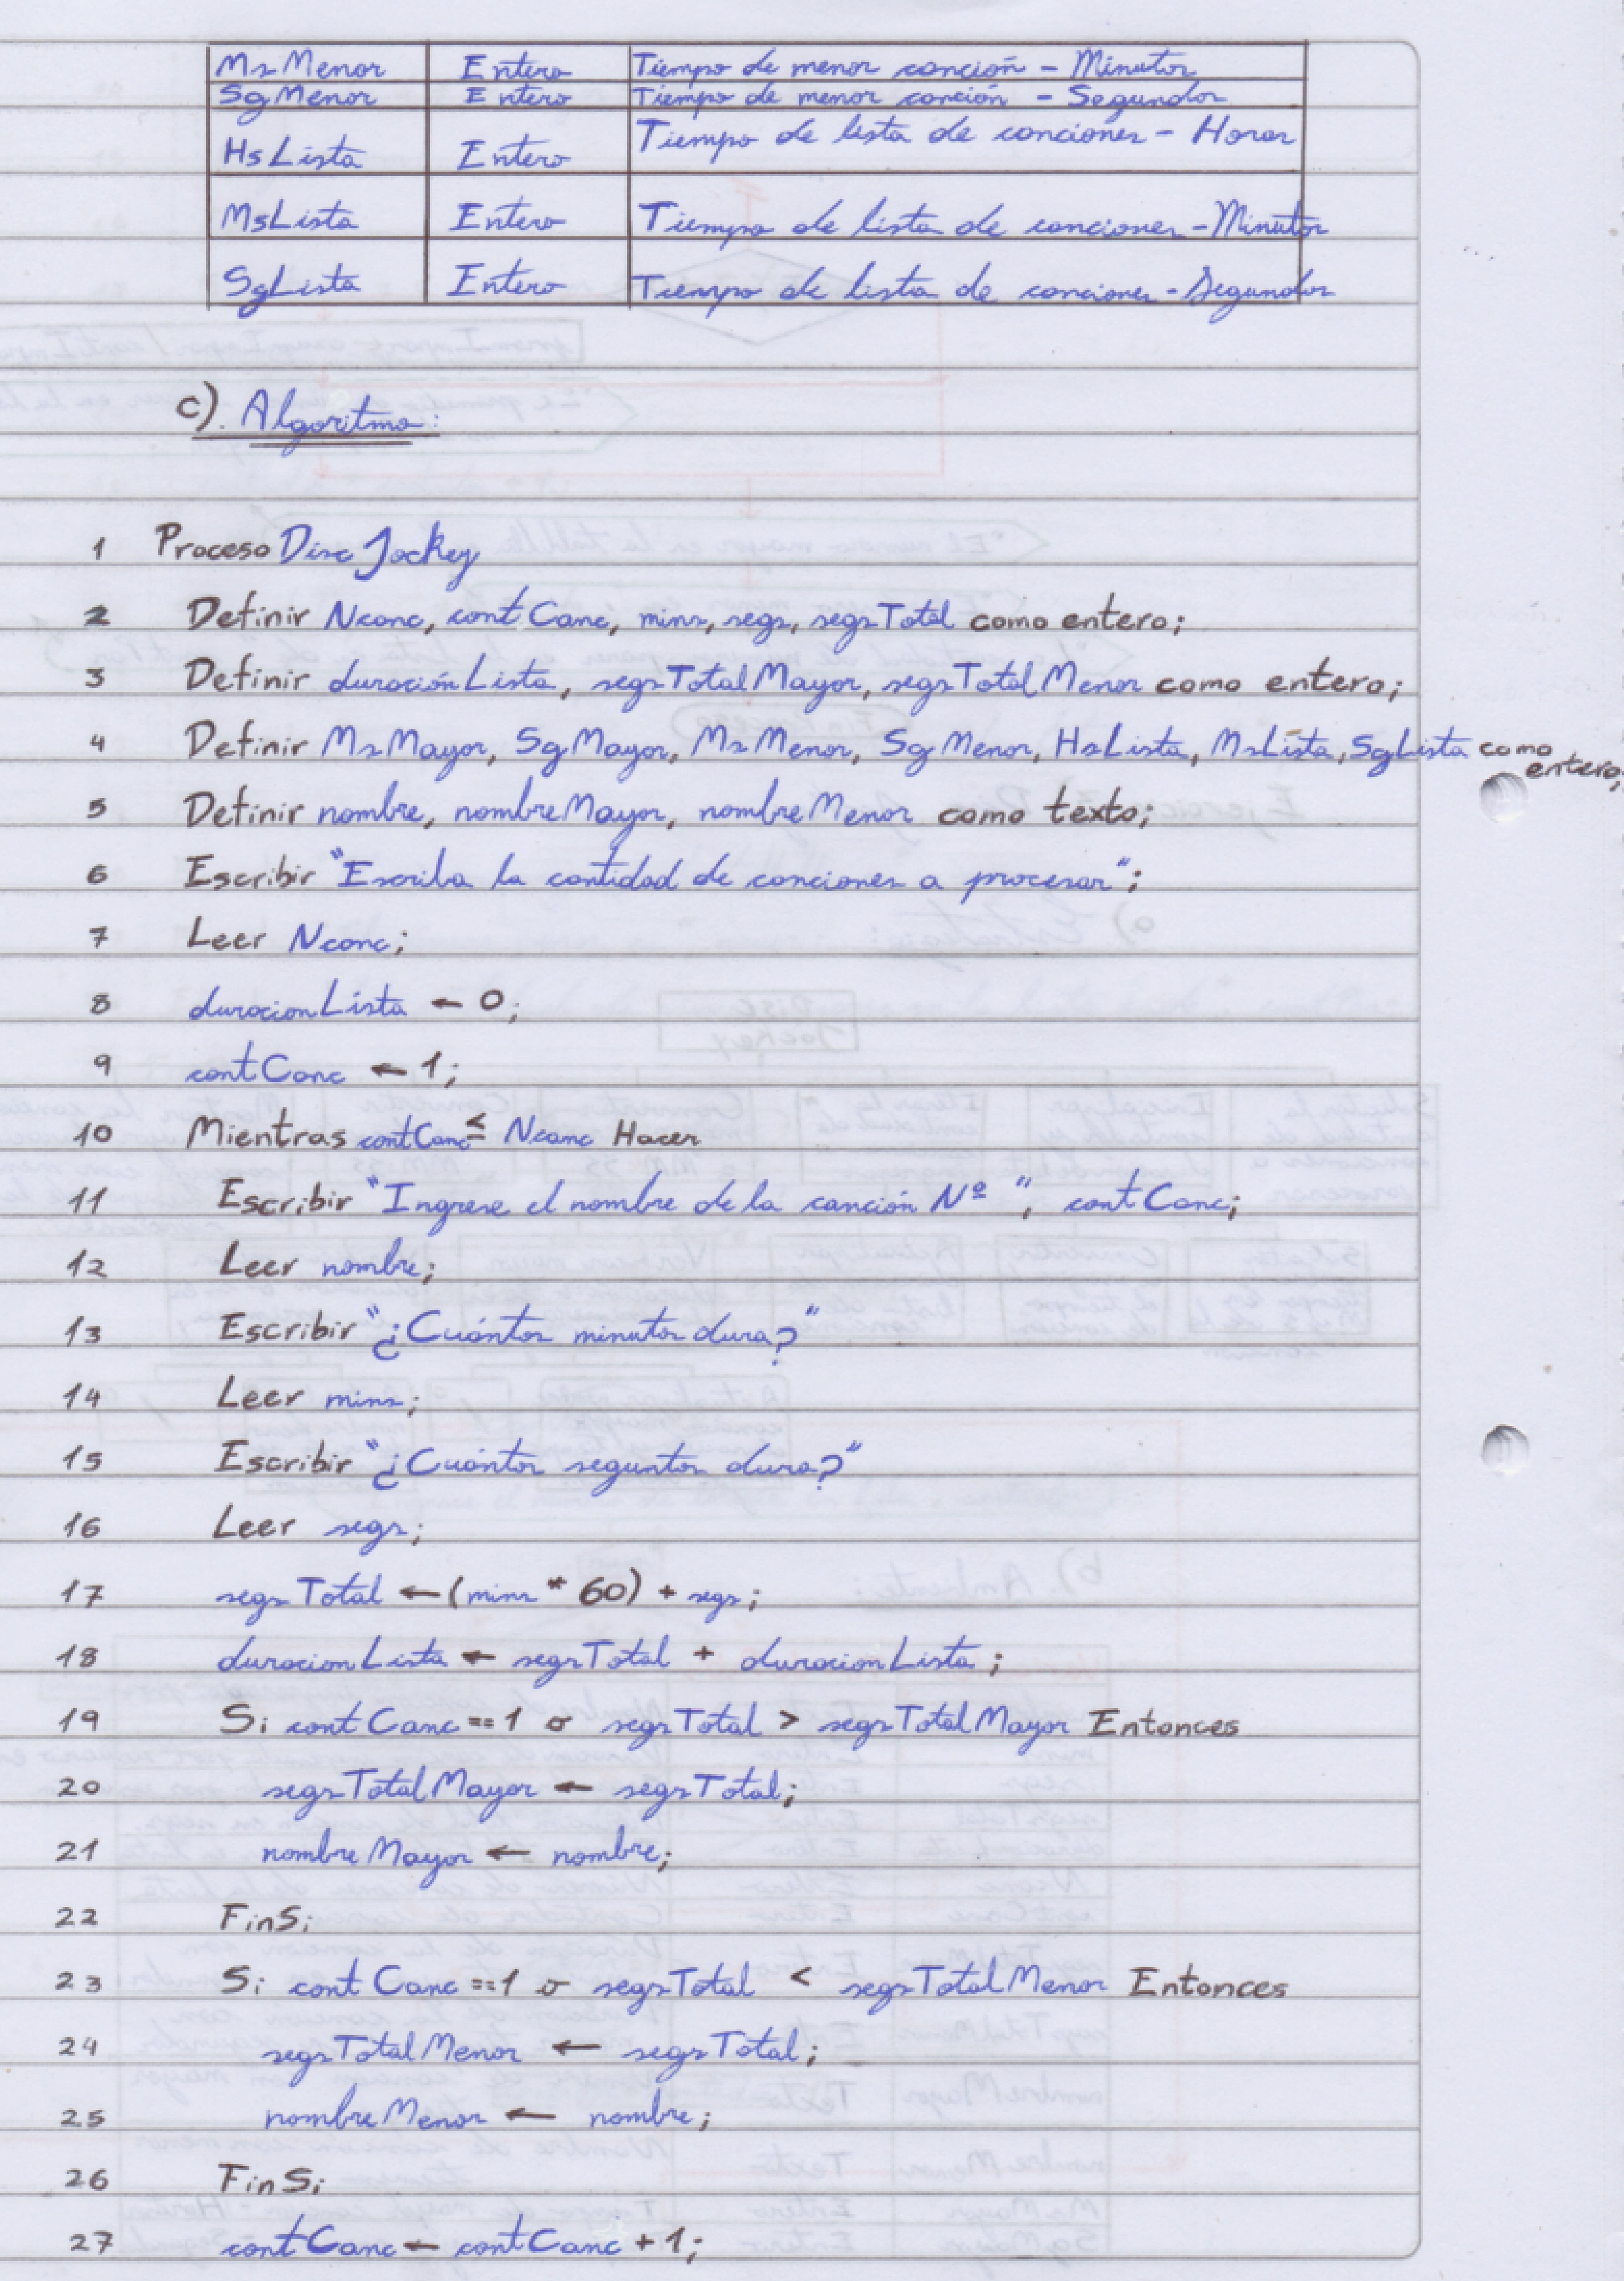 MsMenor Entero Tiempo de menor canción - Minutos
SgMenor Entero Tiempo de menor canción - Segundos
HsLista Entero Tiempo de lista de canciones - Horas
MsLista Entero Tiempo de lista de canciones - Minutos
SgLista Entero Tiempo de lista de canciones - Segundos
c). Algoritmo:
1 Proceso Disc Jockey
2 Definir Ncanc, contCanc, mins, segs, segsTotal como entero;
3 Definir duraciónLista, segsTotalMayor, segsTotalMenor como entero;
4 Definir MsMayor, SgMayor, MsMenor, SgMenor, HsLista, MsLista, SgLista como
entero;
5 Definir nombre, nombreMayor, nombreMenor como texto;
6 Escribir "Escriba la cantidad de canciones a procesar";
7 Leer Ncanc;
8 duracionLista ← 0;
9 contCanc ← 1;
10 Mientras contCanc ≤ Ncanc Hacer
11 Escribir "Ingrese el nombre de la canción Nº ", contCanc;
12 Leer nombre;
13 Escribir "¿Cuántos minutos dura?"
14 Leer mins;
15 Escribir "¿Cuántos seguntos dura?"
16 Leer segs;
17 segsTotal ← (mins * 60) + segs;
18 duracionLista ← segsTotal + duracionLista;
19 Si contCanc == 1 o segsTotal > segsTotalMayor Entonces
20 segsTotalMayor ← segsTotal;
21 nombreMayor ← nombre;
22 FinSi
23 Si contCanc == 1 o segsTotal < segsTotalMenor Entonces
24 segsTotalMenor ← segsTotal;
25 nombreMenor ← nombre;
26 FinSi
27 contCanc ← contCanc + 1;